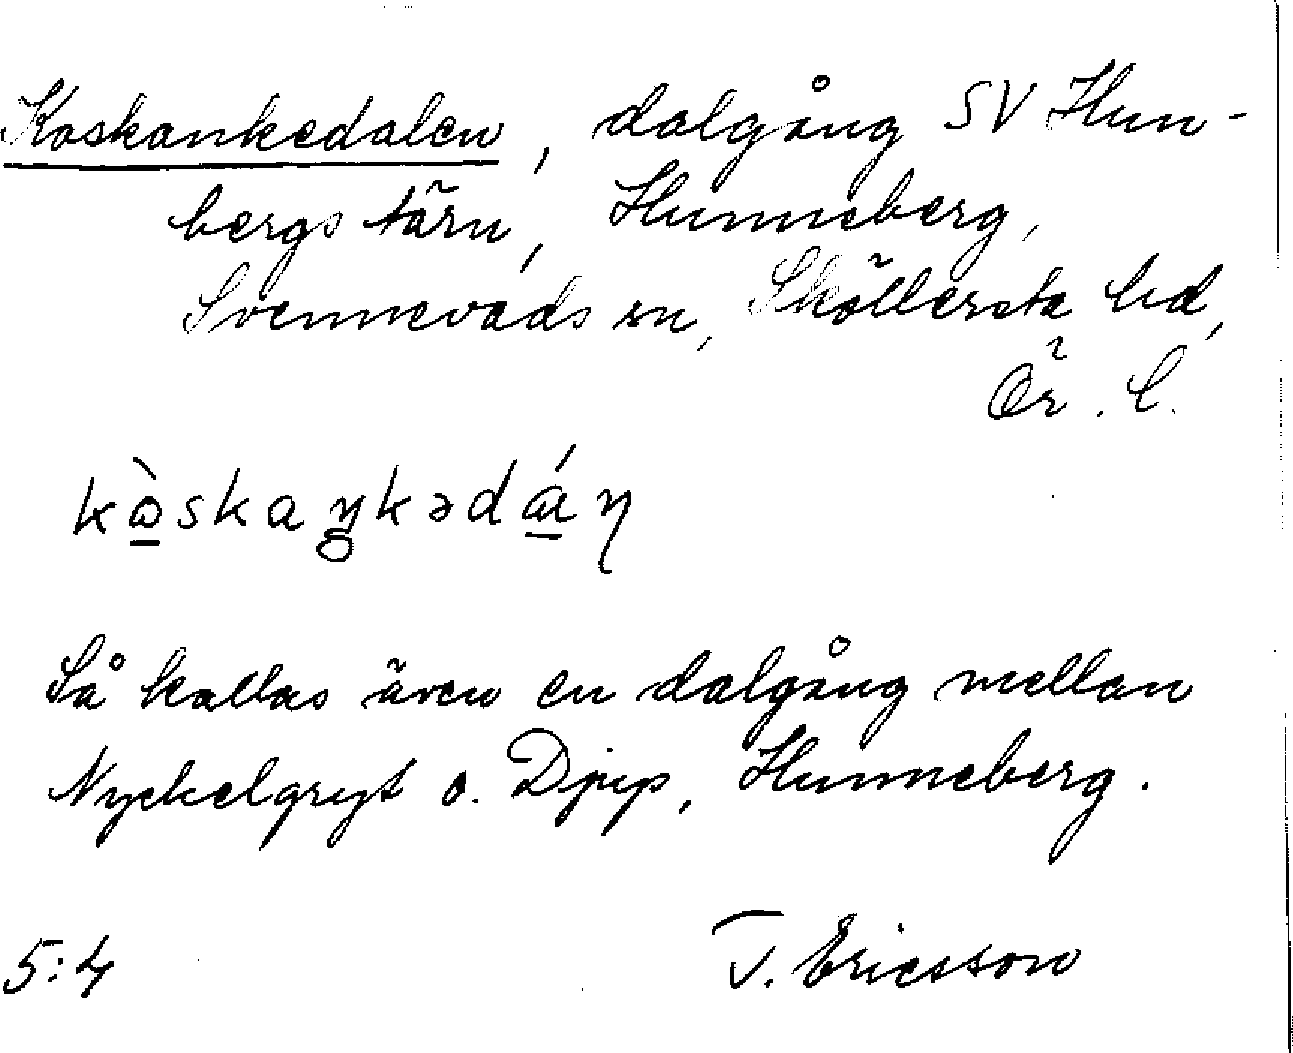 Koskankedalen, dalgång SV Hun-
bergs tärn, Hunneberg,
Svennevads sn, Sköllersta hd,
Ör. l.
kὼskaŋkədáɳ
Så kallas även en dalgång mellan
Nyckelgryt o. Djup, Hunneberg.
5:4 T. Ericsson